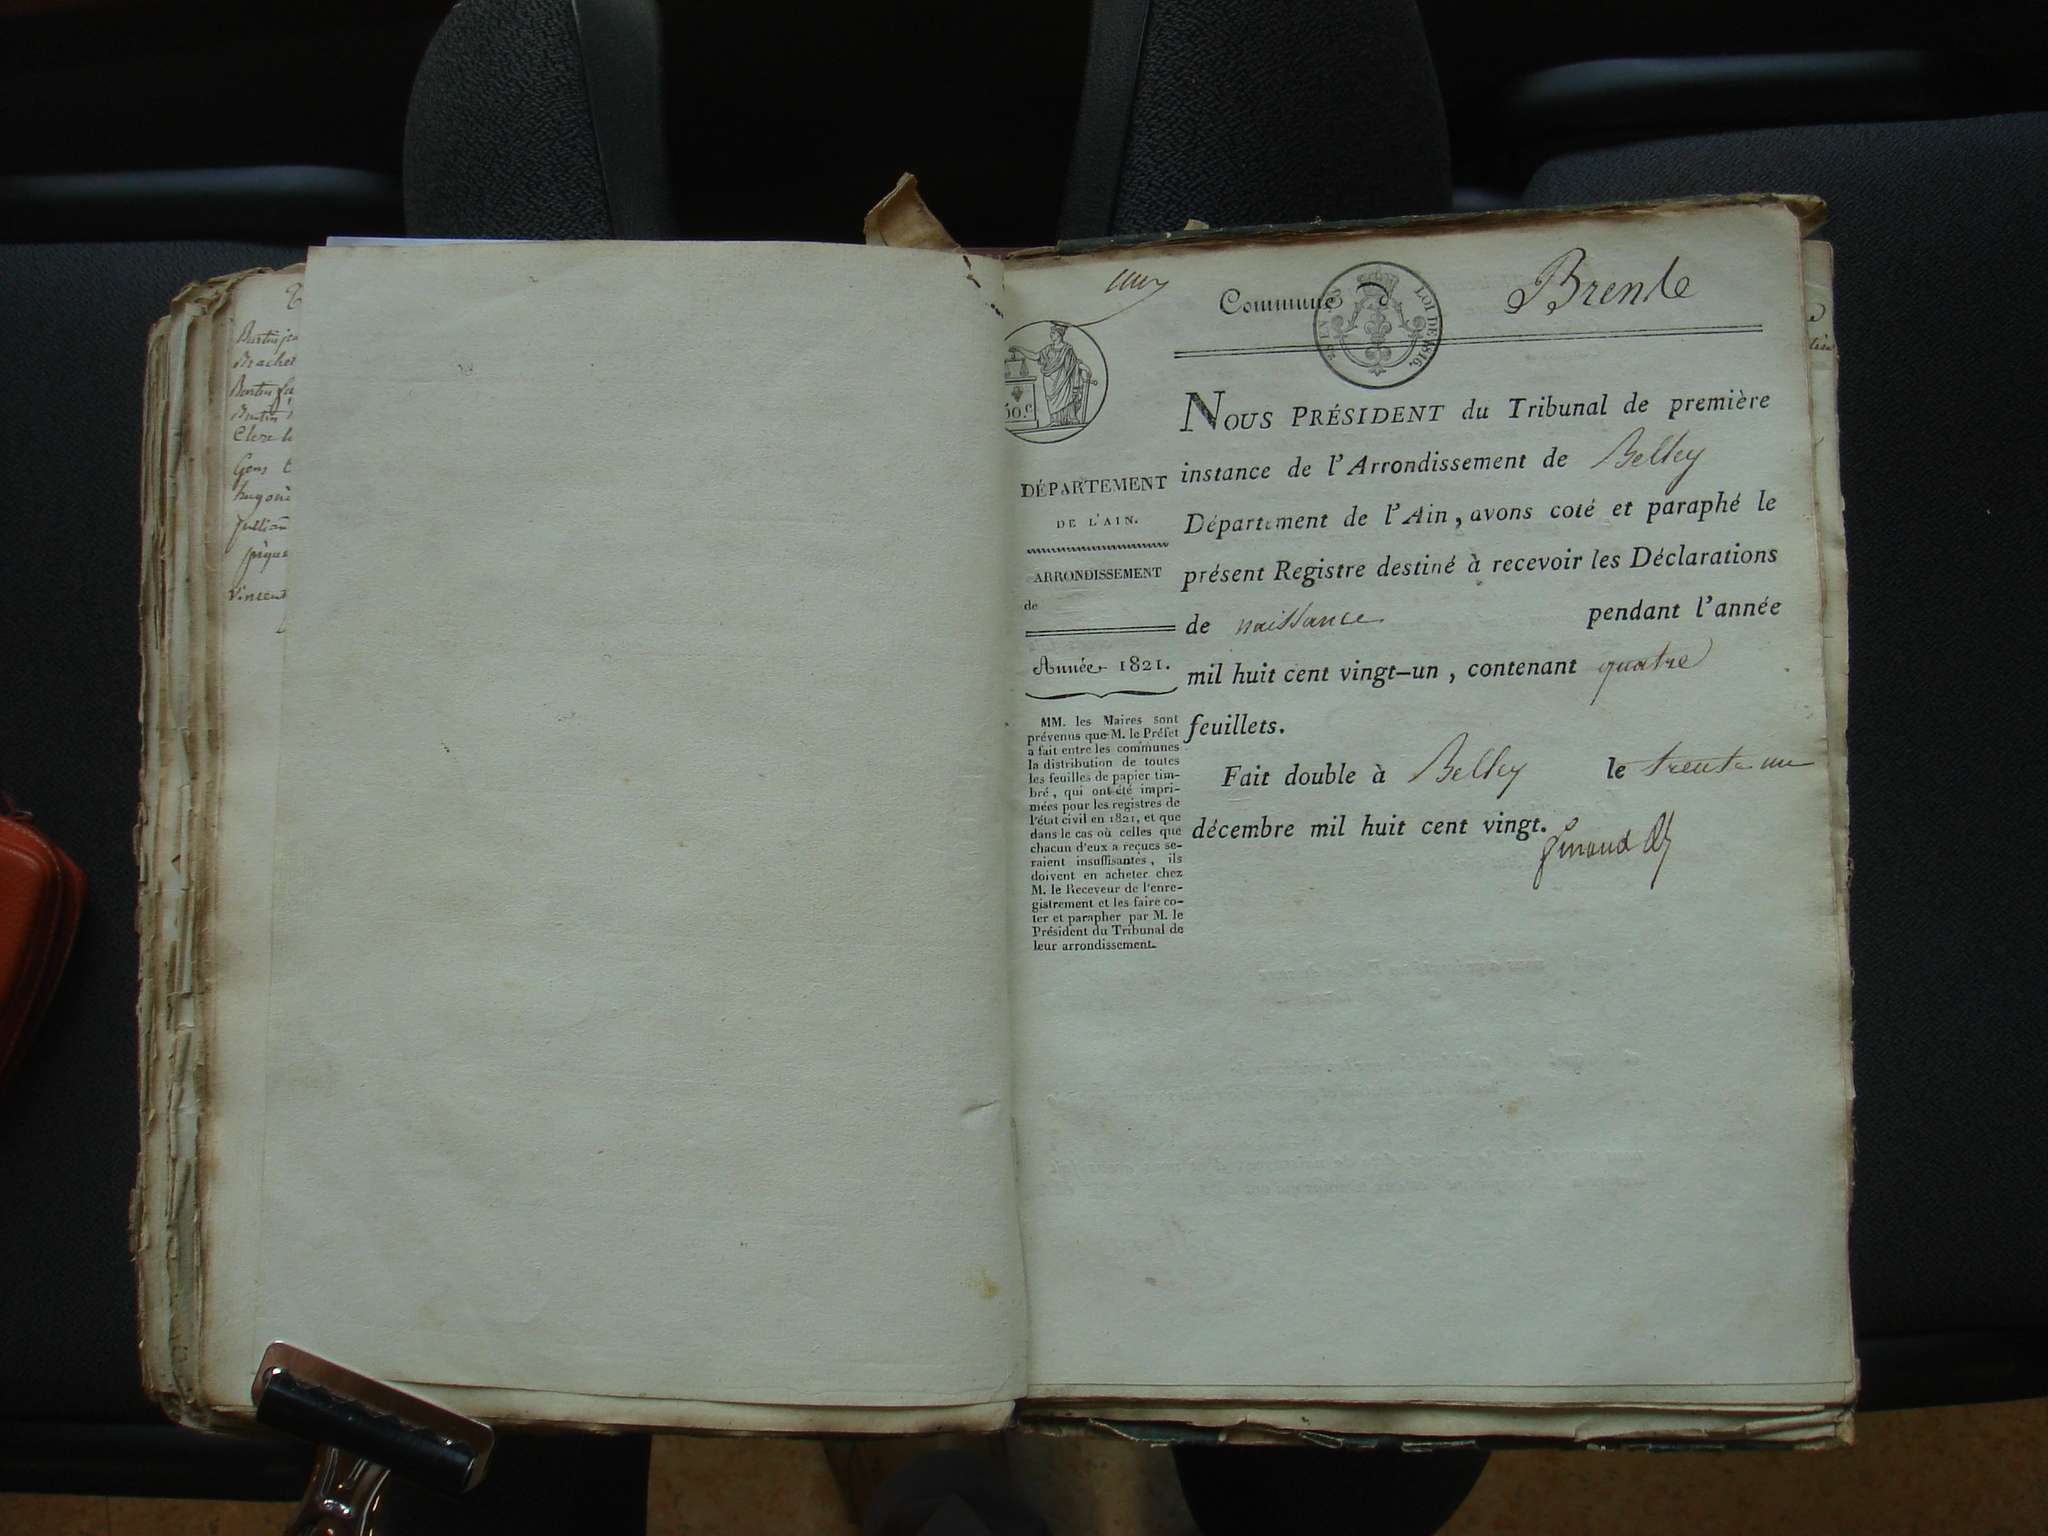 Burtin
Brachet
Burtin
Burtin
Clere
Gons
hugoni
Jullian
Vincent
Commune d
Brenle
EN SUS
LOI DE 1816.
50.c
DÉPARTEMENT
DE L'AIN.
ARRONDISSEMENT
de
Année 1821.
MM. les Maires sont
prévenus que M. le Préfet
a fait entre les communes
la distribution de toutes
les feuilles de papier tim-
bré, qui ont été impri-
mées pour les registres de
l'état civil en 1821, et que
dans le cas où celles que
chacun d'eux a reçues se-
raient insuffisantes, ils
doivent en acheter chez
M. le Receveur de l'enre-
gistrement et les faire co-
ter et parapher par M. le
Président du Tribunal de
leur arrondissement.
NOUS PRÉSIDENT du Tribunal de première
instance de l'Arrondissement de Belley
Département de l'Ain, avons coté et paraphé le
présent Registre destiné à recevoir les Déclarations
de naissance pendant l'année
mil huit cent vingt-un, contenant quatre
feuillets.
Fait double à Belley le trente un
décembre mil huit cent vingt.